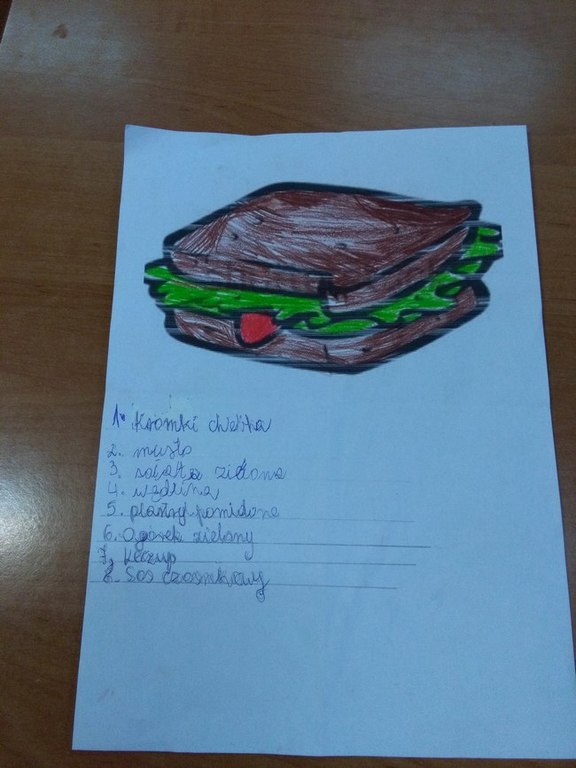 1. Kromki chleba
2. masło
3. sałata zielona
4. wędlina
5. plastry pomidora
6. Ogórek zielony
7. keczup
8. Sos czosnkowy